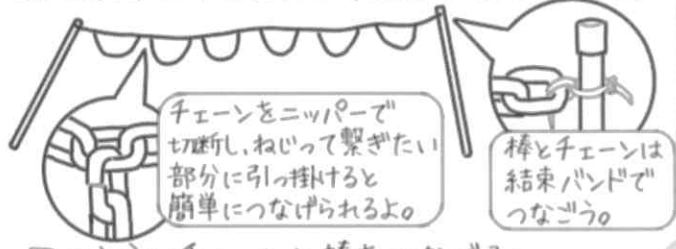 チェーンをニッパーで
切断し、ねじって繋ぎたい
部分に引っ掛けると
簡単につなげられるよ。
棒とチェーンは
結束バンドで
つなごう。